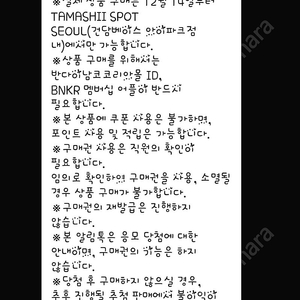 ※실제 상품 구매는 12월 14일부터
TAMASHII SPOT
SEOUL(건담베이스 용산아이파크점
내)에서만 가능합니다.
※상품 구매를 위해서는
반다이남코코리아몰 ID,
BNKR 멤버십 어플이 반드시
필요합니다.
※본 상품에 쿠폰 사용은 불가하며,
포인트 사용 및 적립은 가능합니다.
※구매권 사용은 직원의 확인이
필요합니다.
임의로 확인하여 구매권을 사용, 소멸될
경우 상품 구매가 불가합니다.
※구매권의 재발급은 진행하지
않습니다.
※본 알림톡은 응모 당첨에 대한
안내이며, 구매권의 기능은 하지
않습니다.
※당첨 후 구매하지 않으실 경우,
추후 진행될 추첨 판매에서 불이익이